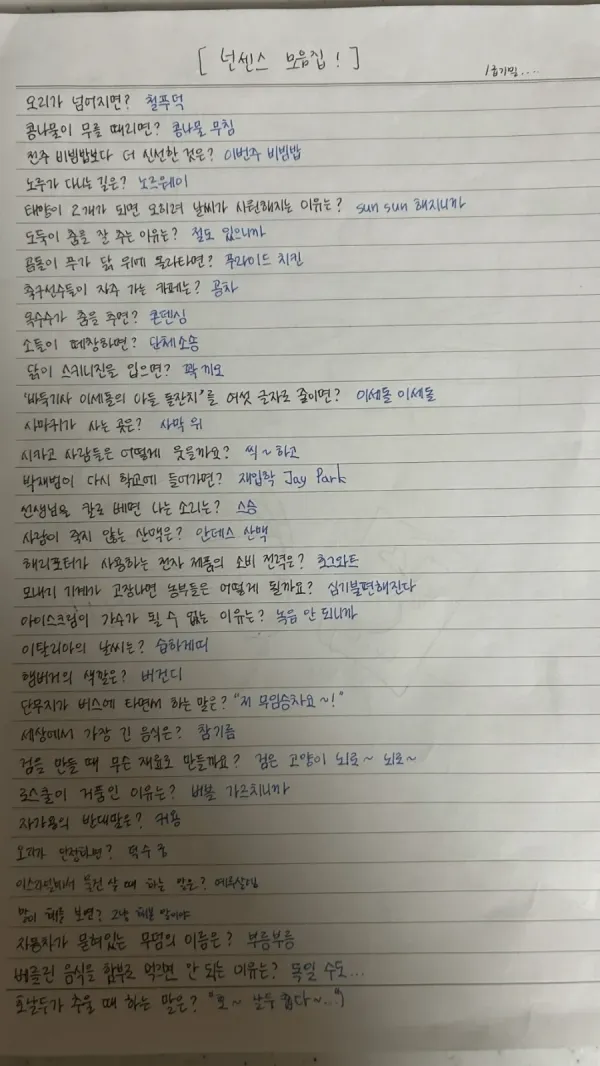 [ 넌센스 모음집! ]
1급기밀....
오리가 넘어지면? 철푸덕
콩나물이 무를 때리면? 콩나물 무침
전주 비빔밥보다 더 신선한 것은? 이번주 비빔밥
노루가 다니는 길은? 노르웨이
태양이 2개가 되면 오히려 날씨가 시원해지는 이유는? sun sun 해지니까
도둑이 춤을 잘 추는 이유는? 절도 있으니까
곰돌이 푸가 닭 위에 올라타면? 푸라이드 치킨
축구선수들이 자주 가는 카페는? 공차
옥수수가 춤을 추면? 콘덴싱
소들이 떼창하면? 단체소송
닭이 스키니진을 입으면? 꽉 끼오
'바둑기사 이세돌의 아들 돌잔치'를 여섯 글자로 줄이면? 이세돌 이세돌
사마귀가 사는 곳은? 사막 위
시카고 사람들은 어떻게 웃을까요? 씩~하고
박재범이 다시 학교에 들어가면? 재입학 Jay Park
선생님을 칼로 베면 나는 소리는? 스승
사람이 죽지 않는 산맥은? 안데스 산맥
해리포터가 사용하는 전자 제품의 소비 전력은? 호그와트
모내기 기계가 고장나면 농부들은 어떻게 될까요? 심기불편해진다
아이스크림이 가수가 될 수 없는 이유는? 녹음 안 되니까
이탈리아의 날씨는? 습하게띠
햄버거의 색깔은? 버건디
단무지가 버스에 타면서 하는 말은? "저 무임승차요~!"
세상에서 가장 긴 음식은? 참기름
검을 만들 때 무슨 재료로 만들까요? 검은 고양이 뇌로~ 뇌로~
로스쿨이 거품인 이유는? 버블 가르치니까
자가용의 반대말은? 커용
오리가 단장하면? 덕수궁
이스라엘에서 물건 살 때 하는 말은? 예루살렘
밤이 해를 보면? 그냥 해본 말이야
자동차가 묻혀있는 무덤의 이름은? 부릉부릉
버블린 음식을 함부로 먹으면 안 되는 이유는? 독일 수도...
호날두가 추울 때 하는 말은? "호~ 날두 춥다~.."